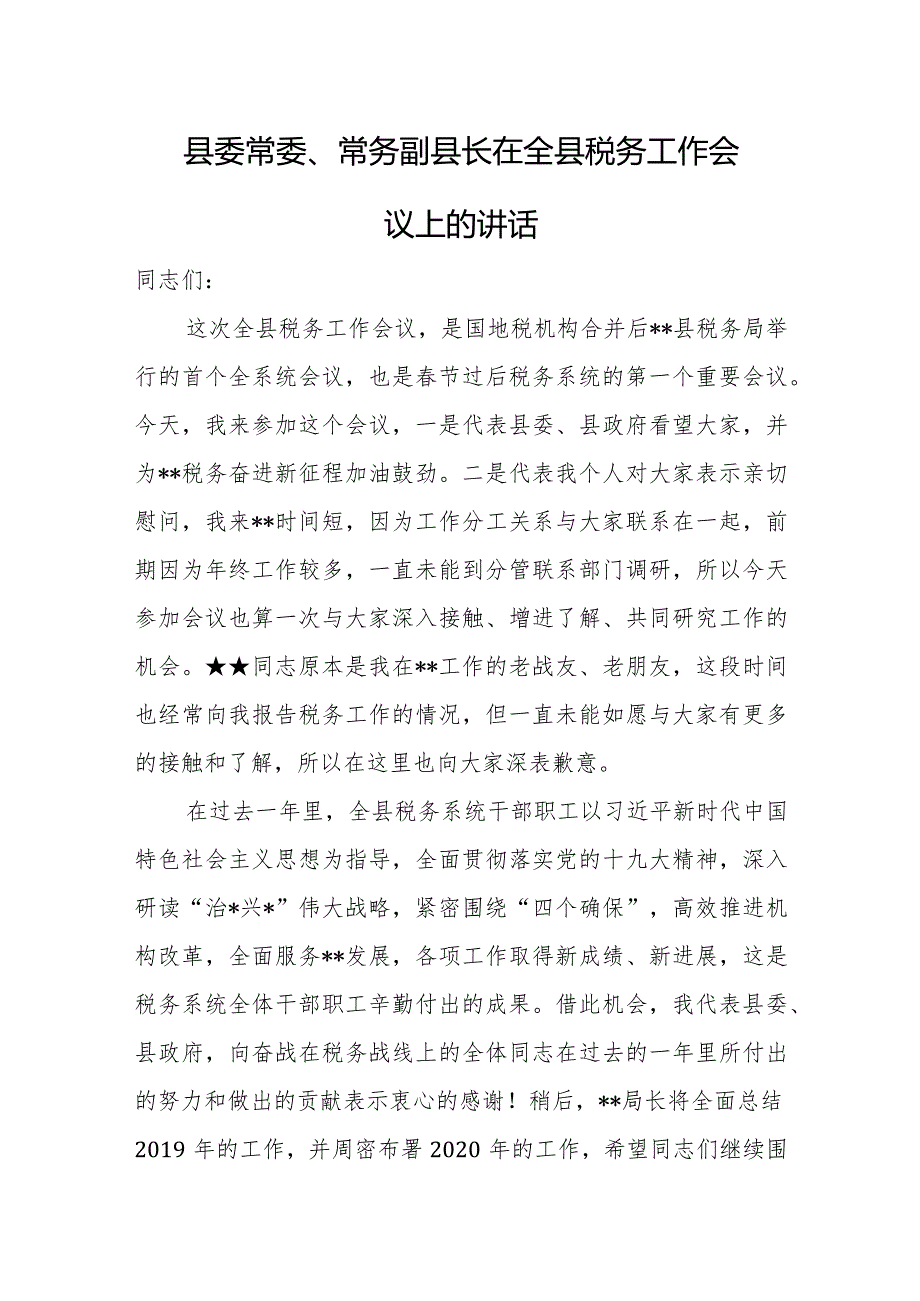 县委常委、常务副县长在全县税务工作会
议上的讲话
同志们：
这次全县税务工作会议，是国地税机构合并后**县税务局举
行的首个全系统会议，也是春节过后税务系统的第一个重要会议。
今天，我来参加这个会议，一是代表县委、县政府看望大家，并
为**税务奋进新征程加油鼓劲。二是代表我个人对大家表示亲切
慰问，我来**时间短，因为工作分工关系与大家联系在一起，前
期因为年终工作较多，一直未能到分管联系部门调研，所以今天
参加会议也算一次与大家深入接触、增进了解、共同研究工作的
机会。★★同志原本是我在**工作的老战友、老朋友，这段时间
也经常向我报告税务工作的情况，但一直未能如愿与大家有更多
的接触和了解，所以在这里也向大家深表歉意。
在过去一年里，全县税务系统干部职工以习近平新时代中国
特色社会主义思想为指导，全面贯彻落实党的十九大精神，深入
研读“治*兴*”伟大战略，紧密围绕“四个确保”，高效推进机
构改革，全面服务**发展，各项工作取得新成绩、新进展，这是
税务系统全体干部职工辛勤付出的成果。借此机会，我代表县委、
县政府，向奋战在税务战线上的全体同志在过去的一年里所付出
的努力和做出的贡献表示衷心的感谢！稍后，**局长将全面总结
2019 年的工作，并周密布署 2020 年的工作，希望同志们继续围